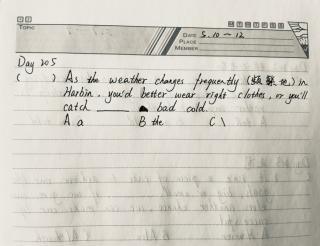 TOPIC
DATE 5.10~12
PLACE
MEMBER
Day 205
( ) As the weather changes frequently (频繁地) in
Harbin, you'd better wear right clothes, or you'll
catch ____ bad cold.
A a B the C \